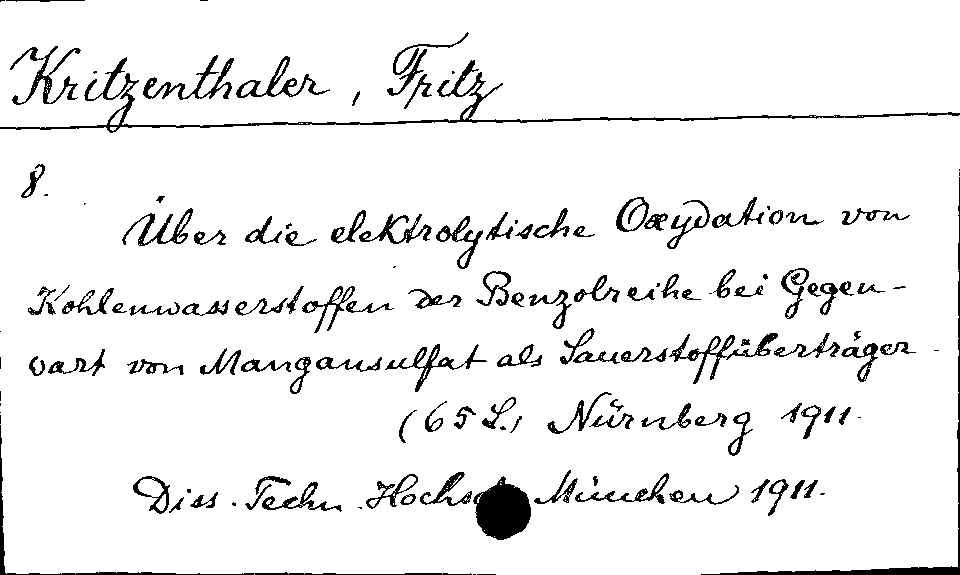 Kritzenthaler, Fritz
8.
Über die elektrolytische Oxydation von
Kohlenwasserstoffen der Benzolreihe bei Gegen-
wart von Mangansulfat als Sauerstoffüberträger.
(65 S.) Nürnberg 1911.
Diss. Techn. Hochsch. München 1911.